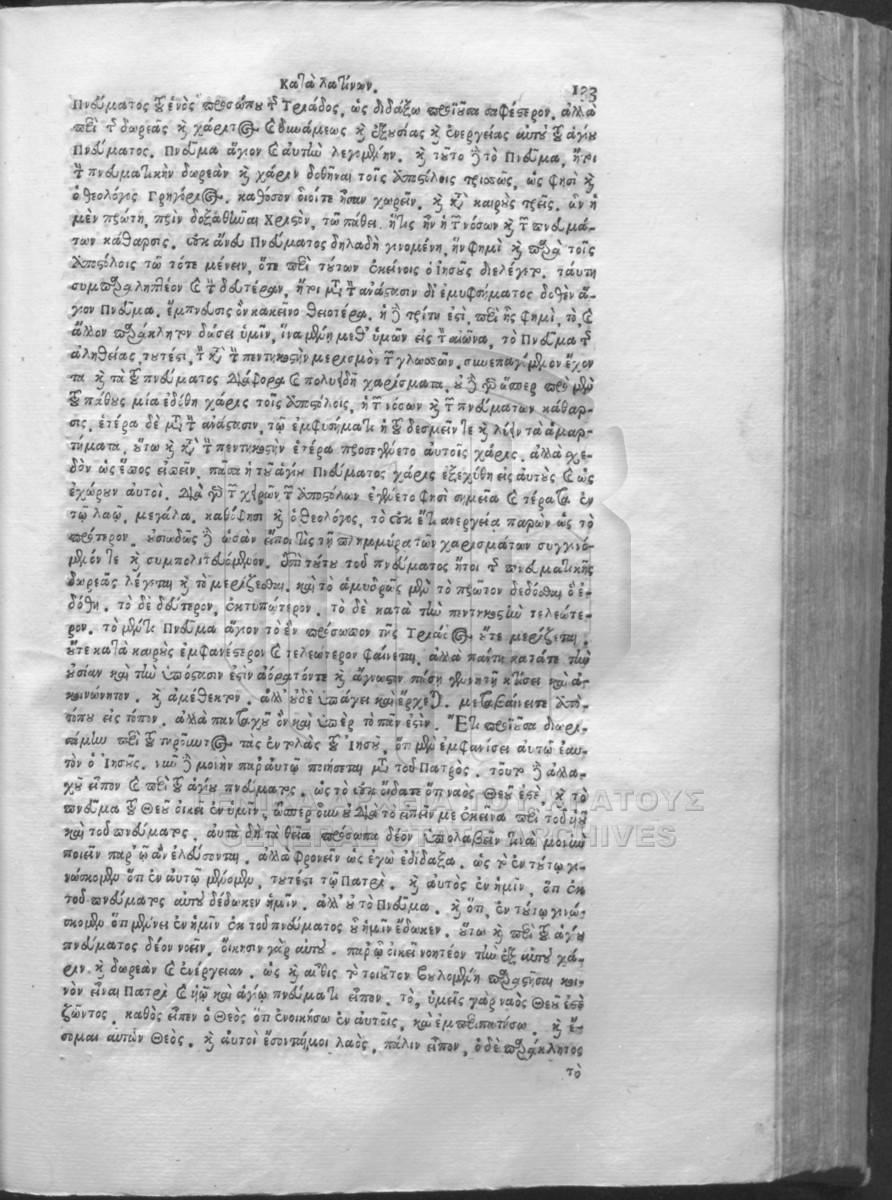 Κατὰ λατίνων. 133
Πνεύματος τοῦ ἑνὸς προσώπου τῆς Τριάδος, ὡς διδάξω προϊοῦσα σαφέστερον. ἀλλὰ
περὶ τῆς δωρεᾶς καὶ χάριτος καὶ δυνάμεως καὶ ἐξουσίας καὶ ἐνεργείας αὐτοῦ τοῦ ἁγίου
Πνεύματος. Πνεῦμα ἅγιον καὶ αὐτὴν λεγομένην. καὶ τοῦτο δὲ τὸ Πνεῦμα, ἤτοι
τὴν πνευματικὴν δωρεὰν καὶ χάριν δοθῆναι τοῖς Ἀποστόλοις τρισσῶς, ὡς φησὶ καὶ
ὁ θεολόγος Γρηγόριος. καθόσον οἷοίτε ἦσαν χωρεῖν. καὶ κατὰ καιροὺς τρεῖς. ὧν ἡ
μὲν πρώτη, πρὶν δοξασθῆναι Χριστὸν, τῷ πάθει. ἥτις ἦν ἡ τῶν νόσων καὶ τῶν πνευμά-
των κάθαρσις. οὐκ ἄνευ Πνεύματος δηλαδὴ γινομένη, ἣν φημὶ καὶ παρὰ τοῖς
Ἀποστόλοις τῷ τότε μένειν, ὅτε περὶ τούτων ἐκείνοις ὁ Ἰησοῦς διελέγετο. ταύτῃ
συμπαραληπτέον καὶ τὴν δευτέραν, ἤτοι μετὰ τὴν ἀνάστασιν δι' ἐμφυσήματος δοθὲν ἅ-
γιον Πνεῦμα. ἔμπνευσις ὂν κἀκεῖνο θειοτέρα. ἡ δὲ τρίτη ἐστὶ, περὶ ἧς φημὶ, τὸ, καὶ
ἄλλον παράκλητον δώσει ὑμῖν, ἵνα μένῃ μεθ' ὑμῶν εἰς τὸν αἰῶνα, τὸ Πνεῦμα τῆς
ἀληθείας τουτέστι, τὸν κατὰ τὴν πεντηκοστὴν μερισμὸν τῶν γλωσσῶν. συνεπαγόμενον ἔχον
τα καὶ τὰ τοῦ πνεύματος διάφορα καὶ πολυειδῆ χαρίσματα. οὐ γὰρ ὥσπερ πρὸ μὲν
τοῦ πάθους μία ἐδόθη χάρις τοῖς Ἀποστόλοις, ἡ τῶν νόσων καὶ τῶν πνευμάτων κάθαρ-
σις, ἑτέρα δὲ μετὰ τὴν ἀνάστασιν, τῷ ἐμφυσήματι ἡ τοῦ δεσμεῖν τε καὶ λύειν τὰ ἁμαρ-
τήματα, οὕτω καὶ κατὰ τὴν πεντηκοστὴν ἑτέρα προσεγένετο αὐτοῖς χάρις. ἀλλὰ σχε-
δὸν ὡς ἔπος εἰπεῖν, πᾶσα ἡ τοῦ ἁγίου Πνεύματος χάρις ἐξεχύθη εἰς αὐτοὺς καὶ ὡς
ἐχώρουν αὐτοὶ. διὰ γὰρ τῶν χειρῶν τῶν Ἀποστόλων ἐγένετο φησὶ σημεῖα καὶ τέρατα ἐν
τῷ λαῷ, μεγάλα. καθὸ φησὶ καὶ ὁ θεολόγος, τὸ οὐκ ἔτι ἐνεργείᾳ παρὼν ὡς τὸ
πρότερον. οὐσιωδῶς δὲ ὡσὰν εἴποι τις τῇ πλημμύρᾳ τῶν χαρισμάτων συγγινό-
μενόν τε καὶ συμπολιτευόμενον. ἐπὶ τούτου τοῦ πνεύματος ἤτοι τῆς πνευματικῆς
δωρεᾶς λέγεται καὶ τὸ μερίζεσθαι. καὶ τὸ ἀμυδρῶς μὲν τὸ πρῶτον δεδόσθαι ὃ ἐ-
δόθη. τὸ δὲ δεύτερον, ἐκτυπώτερον. τὸ δὲ κατὰ τὴν πεντηκοστὴν τελεώτε-
ρον. τὸ μέντοι Πνεῦμα ἅγιον τὸ ἓν πρόσωπον τῆς Τριάδος οὔτε μερίζεται.
οὔτε κατὰ καιροὺς ἐμφανέστερον καὶ τελεώτερον φαίνεται, ἀλλὰ πάντῃ κατάτε τὴν
οὐσίαν καὶ τὴν ὑπόστασιν ἐστὶν ἀόρατόντε καὶ ἄγνωστον πάσῃ γεννητῇ κτίσει καὶ ἀ-
κοινώνητον. καὶ ἀμέθεκτον. ἀλλ' οὐδὲ ὑπάγει καὶ ἔρχεται. μεταβαίνειτε ἀπὸ
τόπου εἰς τόπον. ἀλλὰ πανταχοῦ ὂν καὶ ὑπὲρ τὸ πᾶν ἐστίν. Ἔτι προϊοῦσα διωρι-
σάμην περὶ τοῦ τηροῦντος τὰς ἐντολὰς τοῦ Ἰησοῦ, ὅτι μὲν ἐμφανίσει αὐτῷ ἑαυ-
τὸν ὁ Ἰησοῦς. ναὶ δὲ μονὴν παρ' αὐτῷ ποιήσεται μετὰ τοῦ Πατρὸς. τοῦτο δὲ ἀλλα-
χοῦ εἶπον καὶ περὶ τοῦ ἁγίου πνεύματος. ὡς τὸ οὐκ οἴδατε ὅτι ναὸς Θεοῦ ἐστὲ. καὶ τὸ
πνεῦμα τοῦ Θεοῦ οἰκεῖ ἐν ὑμῖν. ὥσπερ διὰ τὸ εἰπεῖν με ἐκεῖνα περὶ τοῦ υἱοῦ
καὶ τοῦ πνεύματος. αὐτὰ δὴ τὰ θεῖα πρόσωπα δέον ὑπολαβεῖν τινὰ μονὴν
ποιεῖν παρ' ᾧ ἂν ἐλεύσονται. ἀλλὰ φρονεῖν ὡς ἐγὼ ἐδίδαξα. ὡς τὸ ἐν τούτῳ γι-
νώσκομεν ὅτι ἐν αὐτῷ μένομεν, τουτέστι τῷ Πατρὶ. καὶ αὐτὸς ἐν ἡμῖν, ὅτι ἐκ
τοῦ πνεύματος αὐτοῦ δέδωκεν ἡμῖν. ἀλλ' οὐ τὸ Πνεῦμα. καὶ ὅτι, ἐν τούτῳ γινώ-
σκομεν ὅτι μένει ἐν ἡμῖν ἐκ τοῦ πνεύματος οὗ ἡμῖν ἔδωκεν. οὕτω καὶ περὶ τοῦ ἁγίου
πνεύματος δέον νοεῖν. οἴκησιν γὰρ αὐτοῦ. παρ' ᾧ οἰκεῖ νοητέον τὴν ἐξ αὐτοῦ χά-
ριν καὶ δωρεὰν καὶ ἐνέργειαν. ὡς καὶ αὖθις τὸ τοιοῦτον βουλομένη παραστῆσαι κοι-
νὸν εἶναι Πατρὶ καὶ υἱῷ καὶ ἁγίῳ πνεύματι εἶπον. τὸ, ὑμεῖς γὰρ ναὸς Θεοῦ ἐστὲ
ζῶντος. καθὼς εἶπεν ὁ Θεὸς ὅτι ἐνοικήσω ἐν αὐτοῖς, καὶ ἐμπεριπατήσω. καὶ ἔ-
σομαι αὐτῶν Θεὸς. καὶ αὐτοὶ ἔσονταί μοι λαὸς, πάλιν εἶπον, ὁ δὲ παράκλητος
τὸ
ΓΕΝΙΚΑ ΑΡΧΕΙΑ ΤΟΥ ΚΡΑΤΟΥΣ
GENERAL STATE ARCHIVES